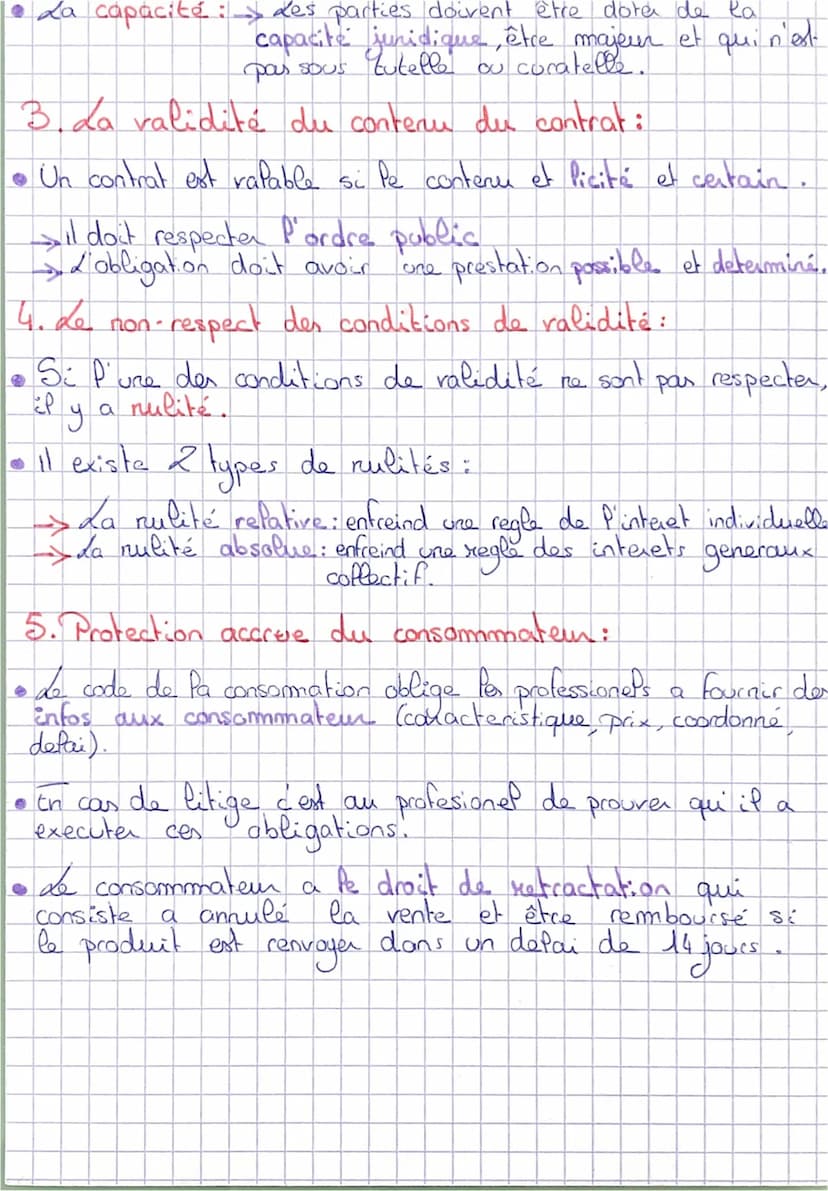 • La capacité : → Les parties doivent être doter de la
capacité juridique, être majeur et qui n'est
pas sous tutelle ou curatelle.
3. La validité du contenu du contrat :
• Un contrat est valable si le contenu et licité et certain.
→ il doit respecter l'ordre public
→ L'obligation doit avoir une prestation possible et determiné.
4. Le non-respect des conditions de validité :
• Si l'une des conditions de validité ne sont pas respecter,
il y a nulité.
• Il existe 2 types de nulités :
→ La nulité relative : enfreind une regle de l'interet individuelle
→ La nulité absolue : enfreind une regle des interets generaux
collectif.
5. Protection accrue du consommmateur :
• Le code de la consommation oblige les professionels a fournir des
infos aux consommmateur (caracteristique, prix, coordonné,
delai).
• En cas de litige c'est au profesionel de prouver qu'il a
executer ces obligations.
• Le consommmateur a le droit de retractation qui
consiste a annulé la vente et être remboursé si
le produit est renvoyer dans un delai de 14 jours.